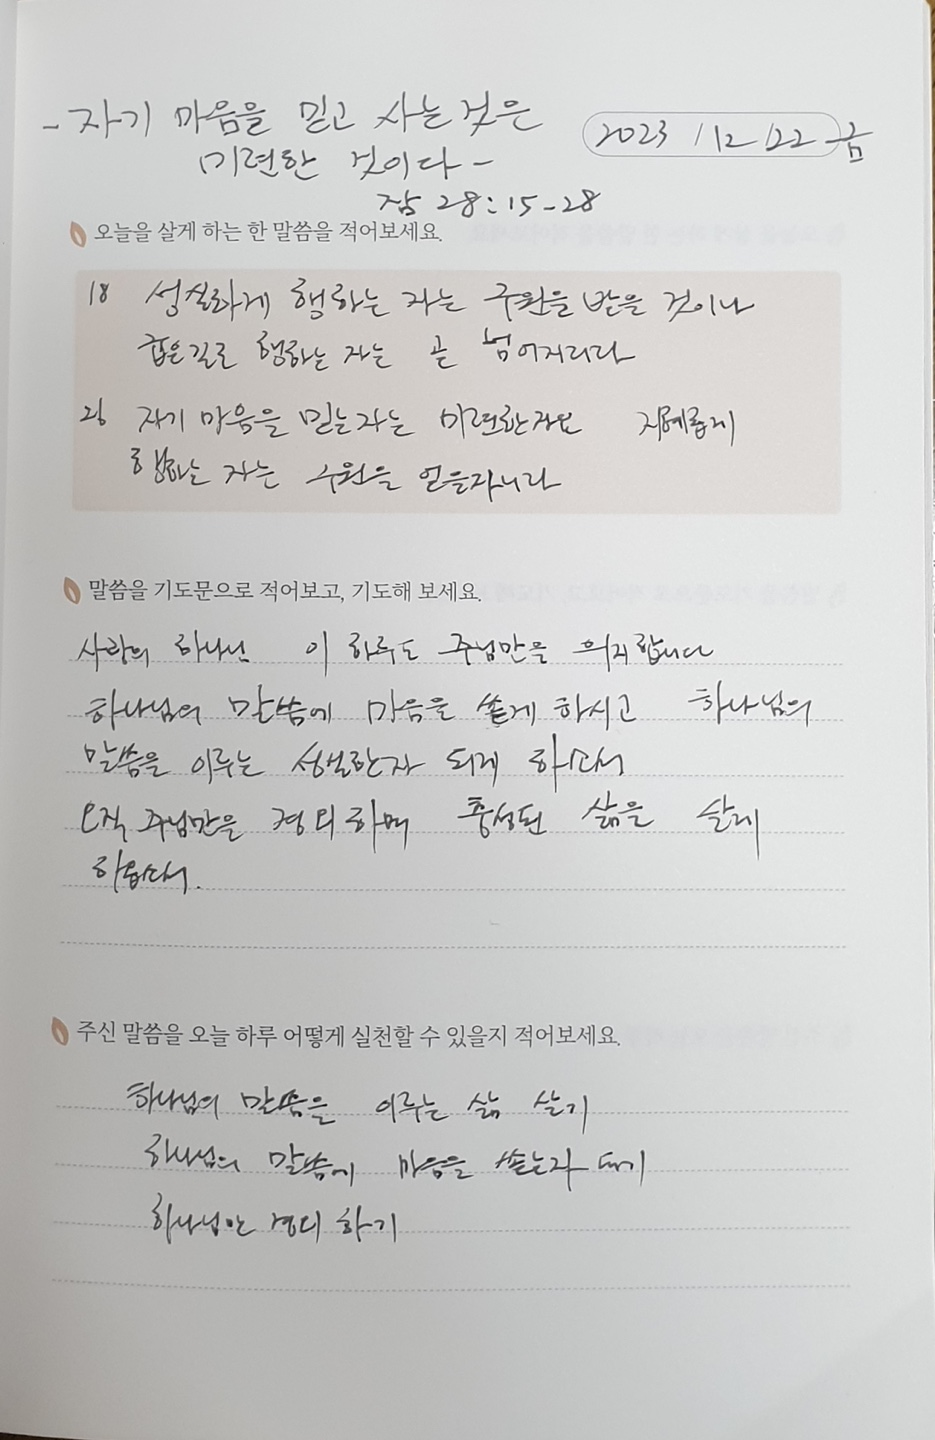 - 자기 마음을 믿고 사는 것은
미련한 것이다 -
2023 / 12 / 22 금
잠 28:15-28
오늘을 살게 하는 한 말씀을 적어보세요.
18 성실하게 행하는 자는 구원을 받을 것이나
굽은길로 행하는 자는 곧 넘어지리라
26 자기 마음을 믿는자는 미련한자요 지혜롭게
행하는 자는 구원을 얻을자니라
말씀을 기도문으로 적어보고, 기도해 보세요.
사랑의 하나님 이 하루도 주님만을 의지합니다
하나님의 말씀에 마음을 쏟게 하시고 하나님의
말씀을 이루는 성실한자 되게 하소서
오직 주님만을 경외하며 충성된 삶을 살게
하옵소서.
주신 말씀을 오늘 하루 어떻게 실천할 수 있을지 적어보세요.
하나님의 말씀을 이루는 삶 살기
하나님의 말씀에 마음을 쏟는자 되기
하나님만 경외 하기